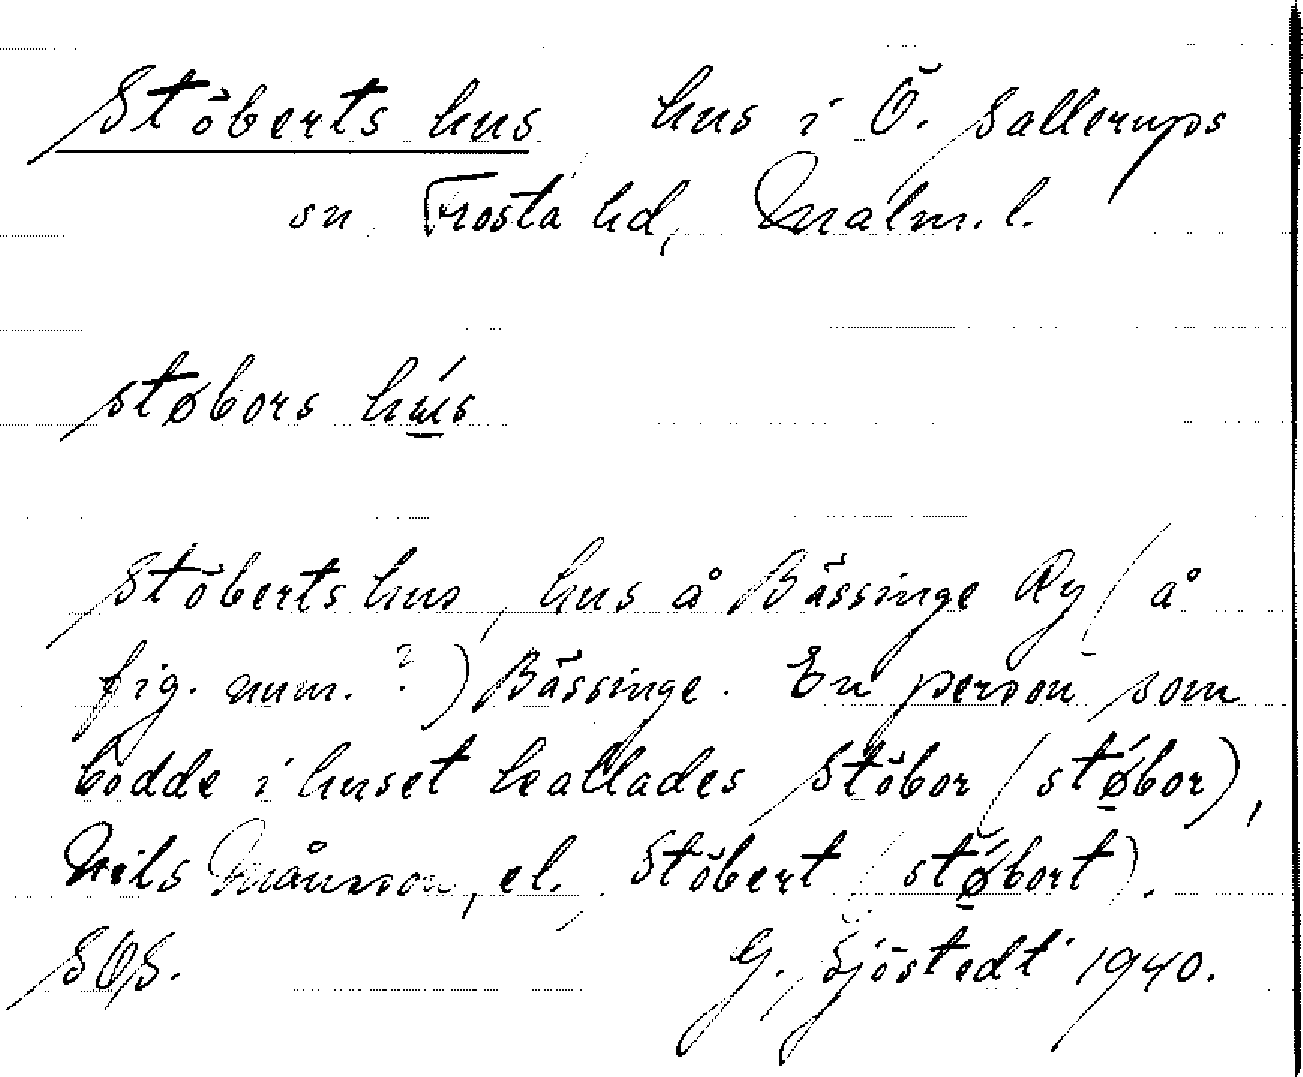 Stöberts hus hus i Ö. Sallerups
sn. Frosta hd, Malm. l.
støbors hús
Stöberts hus, hus å Bässinge Ry (å
fig. num. ?) Bässinge. En person som
bodde i huset kallades Stöbor (stǿbor),
Nils Månsson, el. Stöbert (stǿbort).
SOS. G. Sjöstedt 1940.